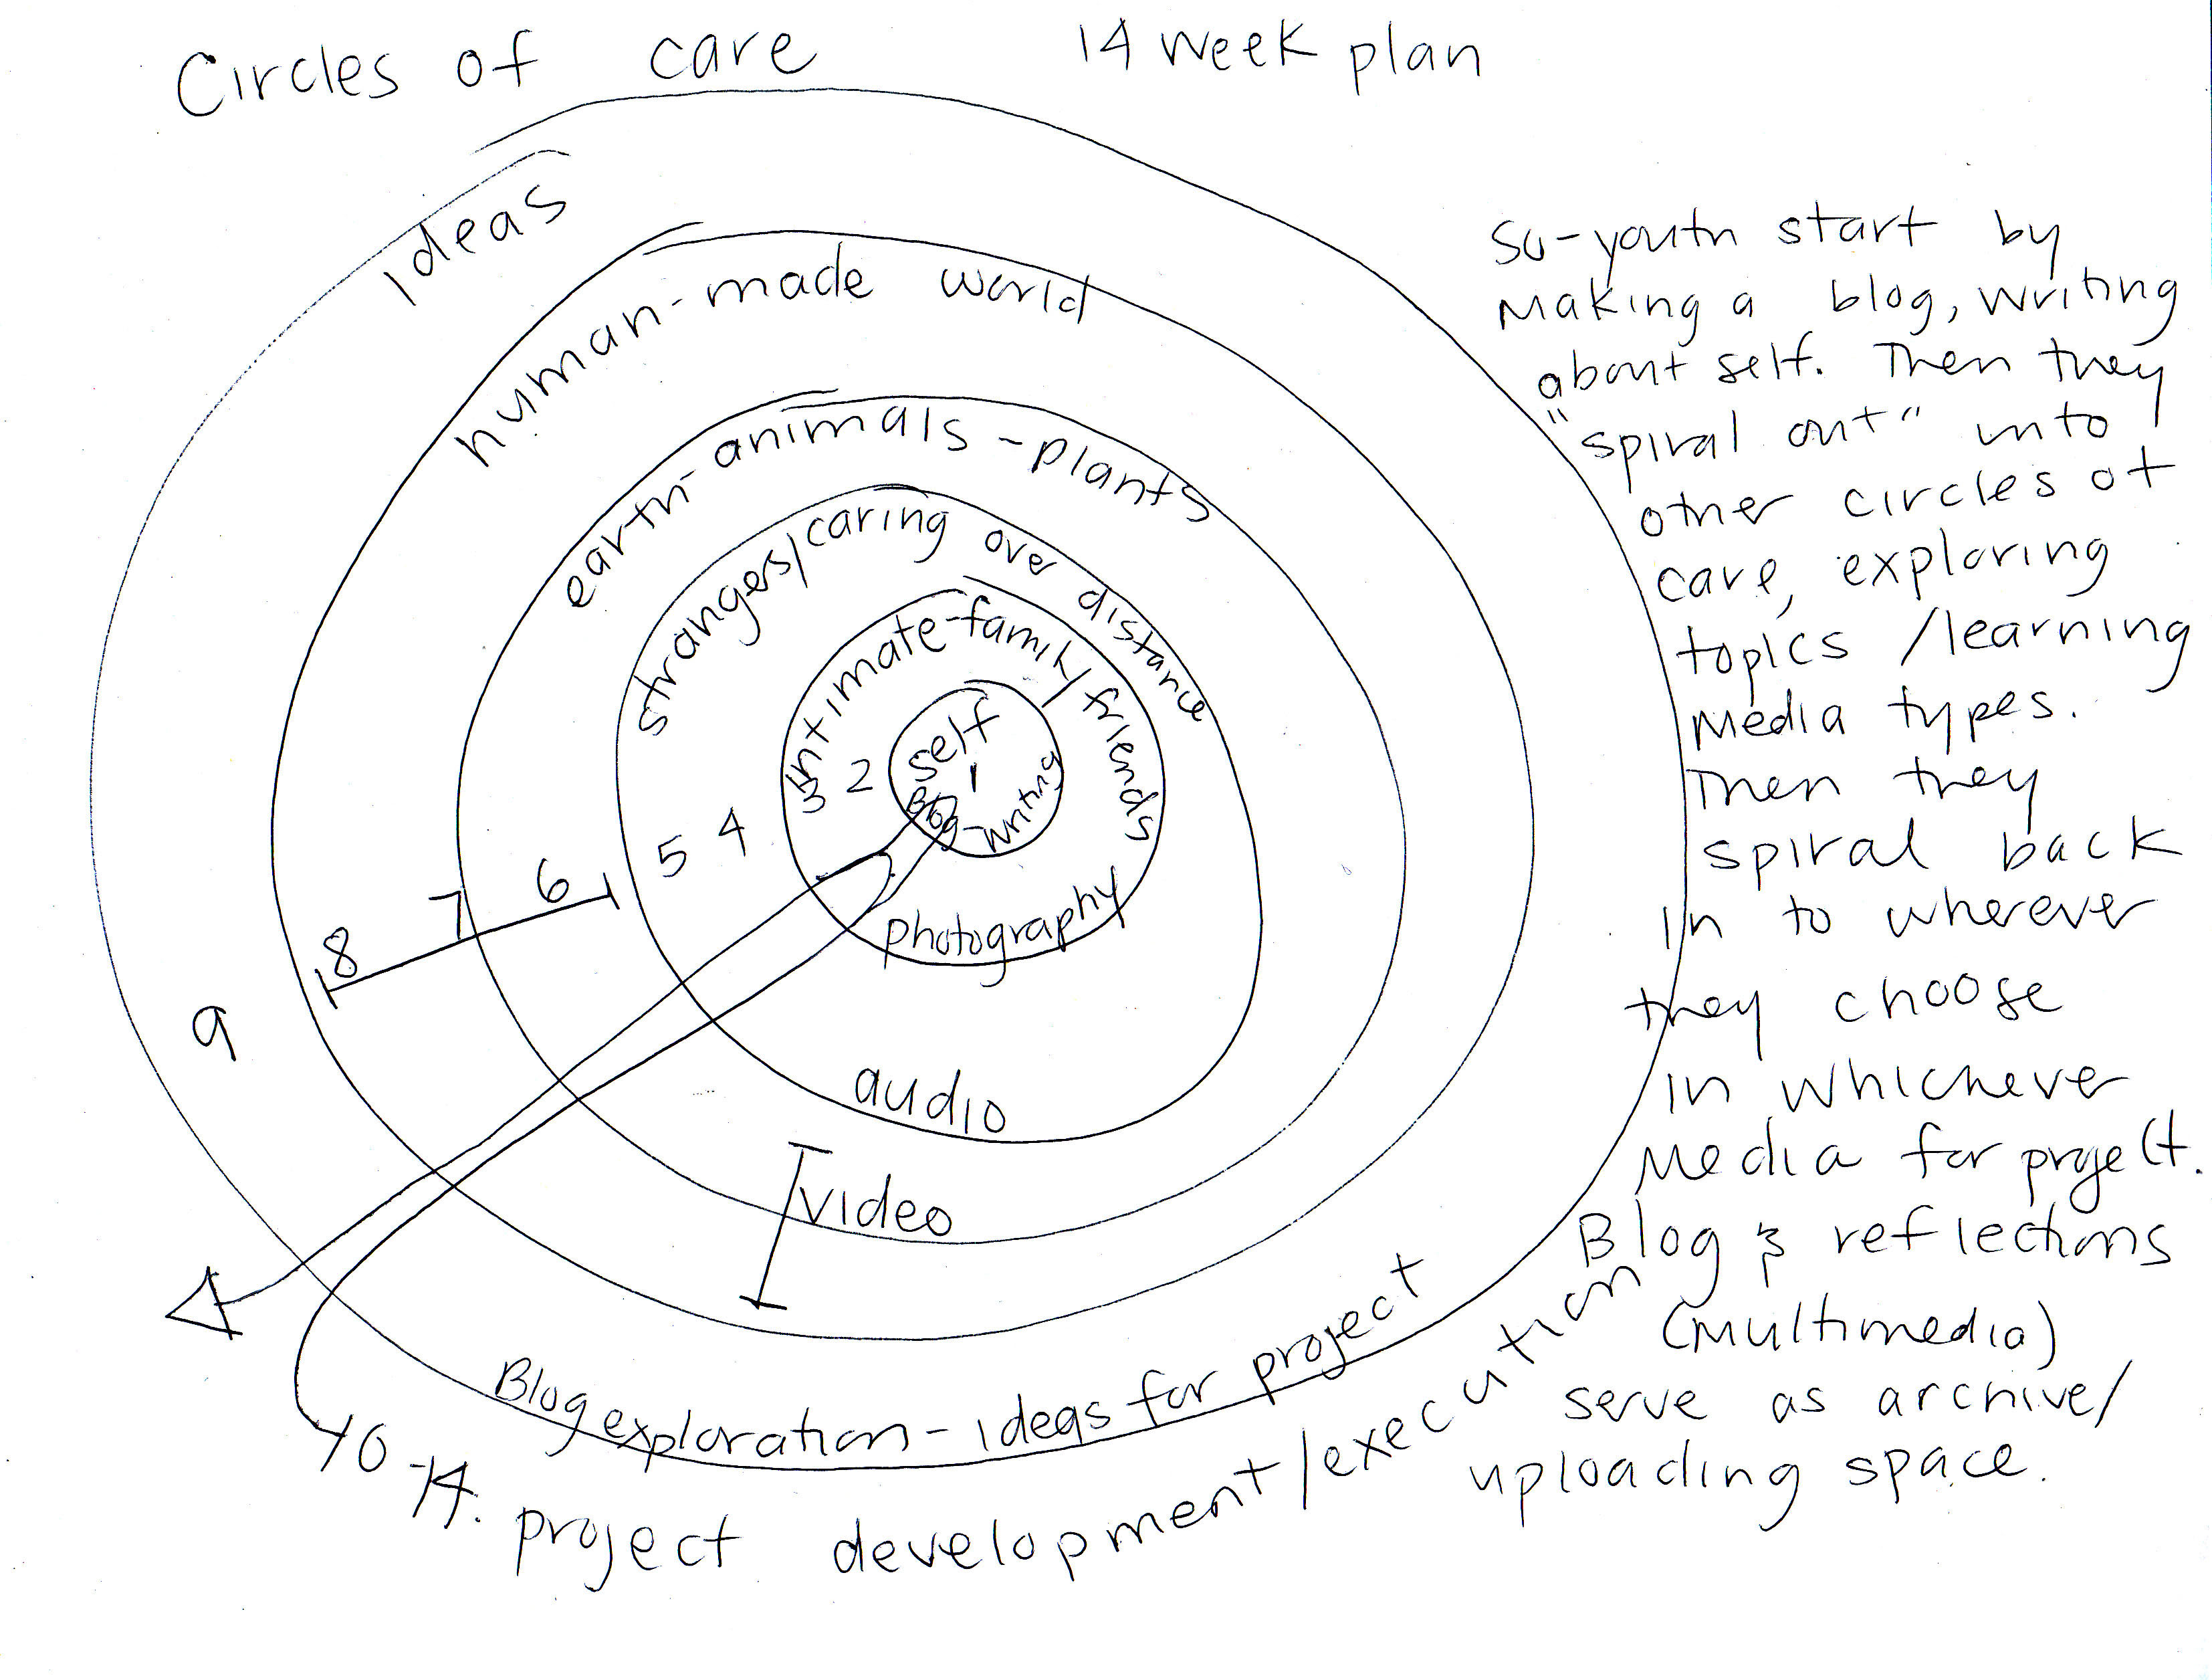 Circles of care 14 week plan
Ideas
human-made world
earth-animals-plants
strangers/caring over distance
intimate-family/friends
self
1
Blog-writing
2
3
4
5
6
7
8
9
photography
audio
video
Blog exploration - ideas for project
10-14. project development/execution
So-youth start by
making a blog, writing
about self. Then they
"spiral out" into
other circles of
care, exploring
topics /learning
media types.
Then they
spiral back
in to wherever
they choose
in whichever
media for project.
Blog & reflections
(multimedia)
serve as archive/
uploading space.